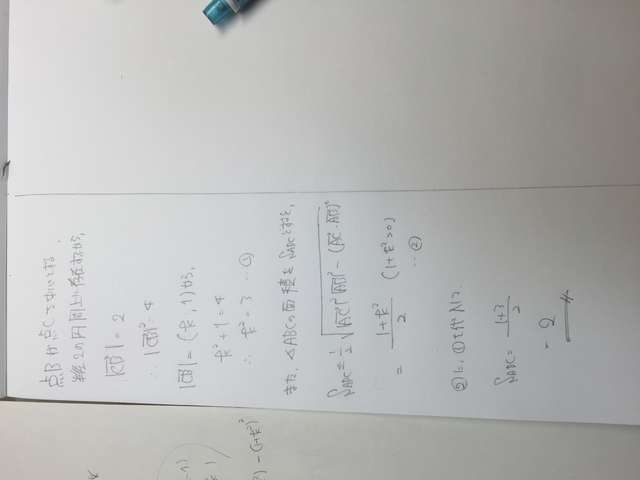 点Bが点Cを中心とする
半径2の円周上に存在するから,
|CB| = 2
∴ |CB|² = 4
|CB| = (k, 1)から,
k² + 1 = 4
∴ k² = 3 … ①
また, △ABCの面積を S△ABCとすると,
S△ABC = 1/2 √|AC|²|AB|² - (AC・AB)²
= (1+k²)/2 (1+k²>0) … ②
②に, ①を代入して,
S△ABC = (1+3)/2
= 2
) - (1+k²)²